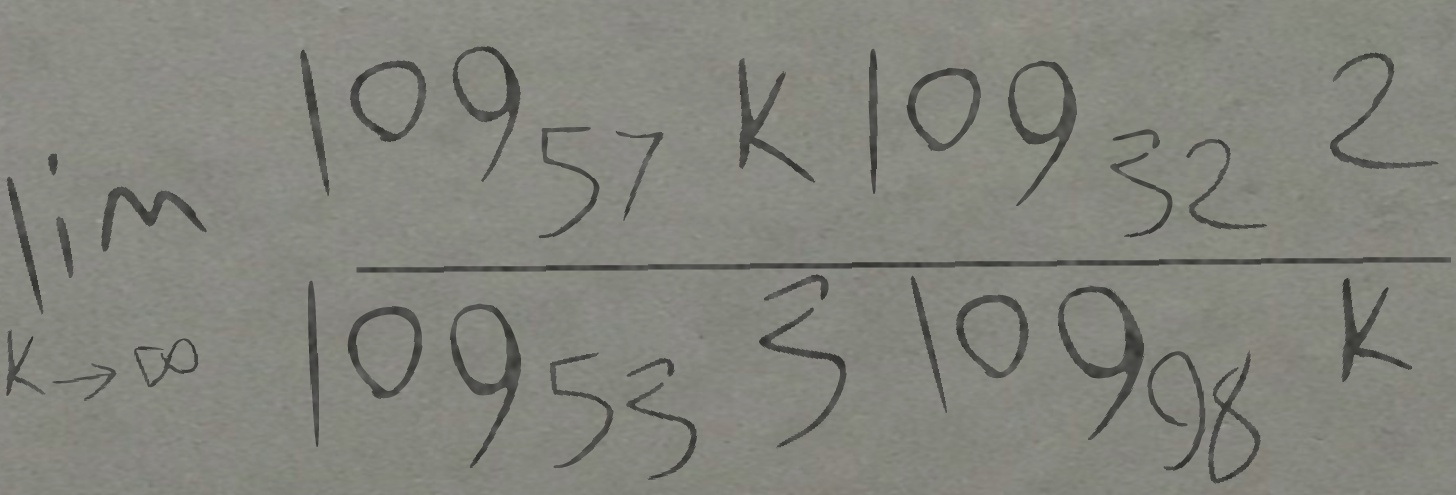 \lim_{k \to \infty} \frac{\log_{57} k \log_{32} 2}{\log_{53} 3 \log_{98} k}